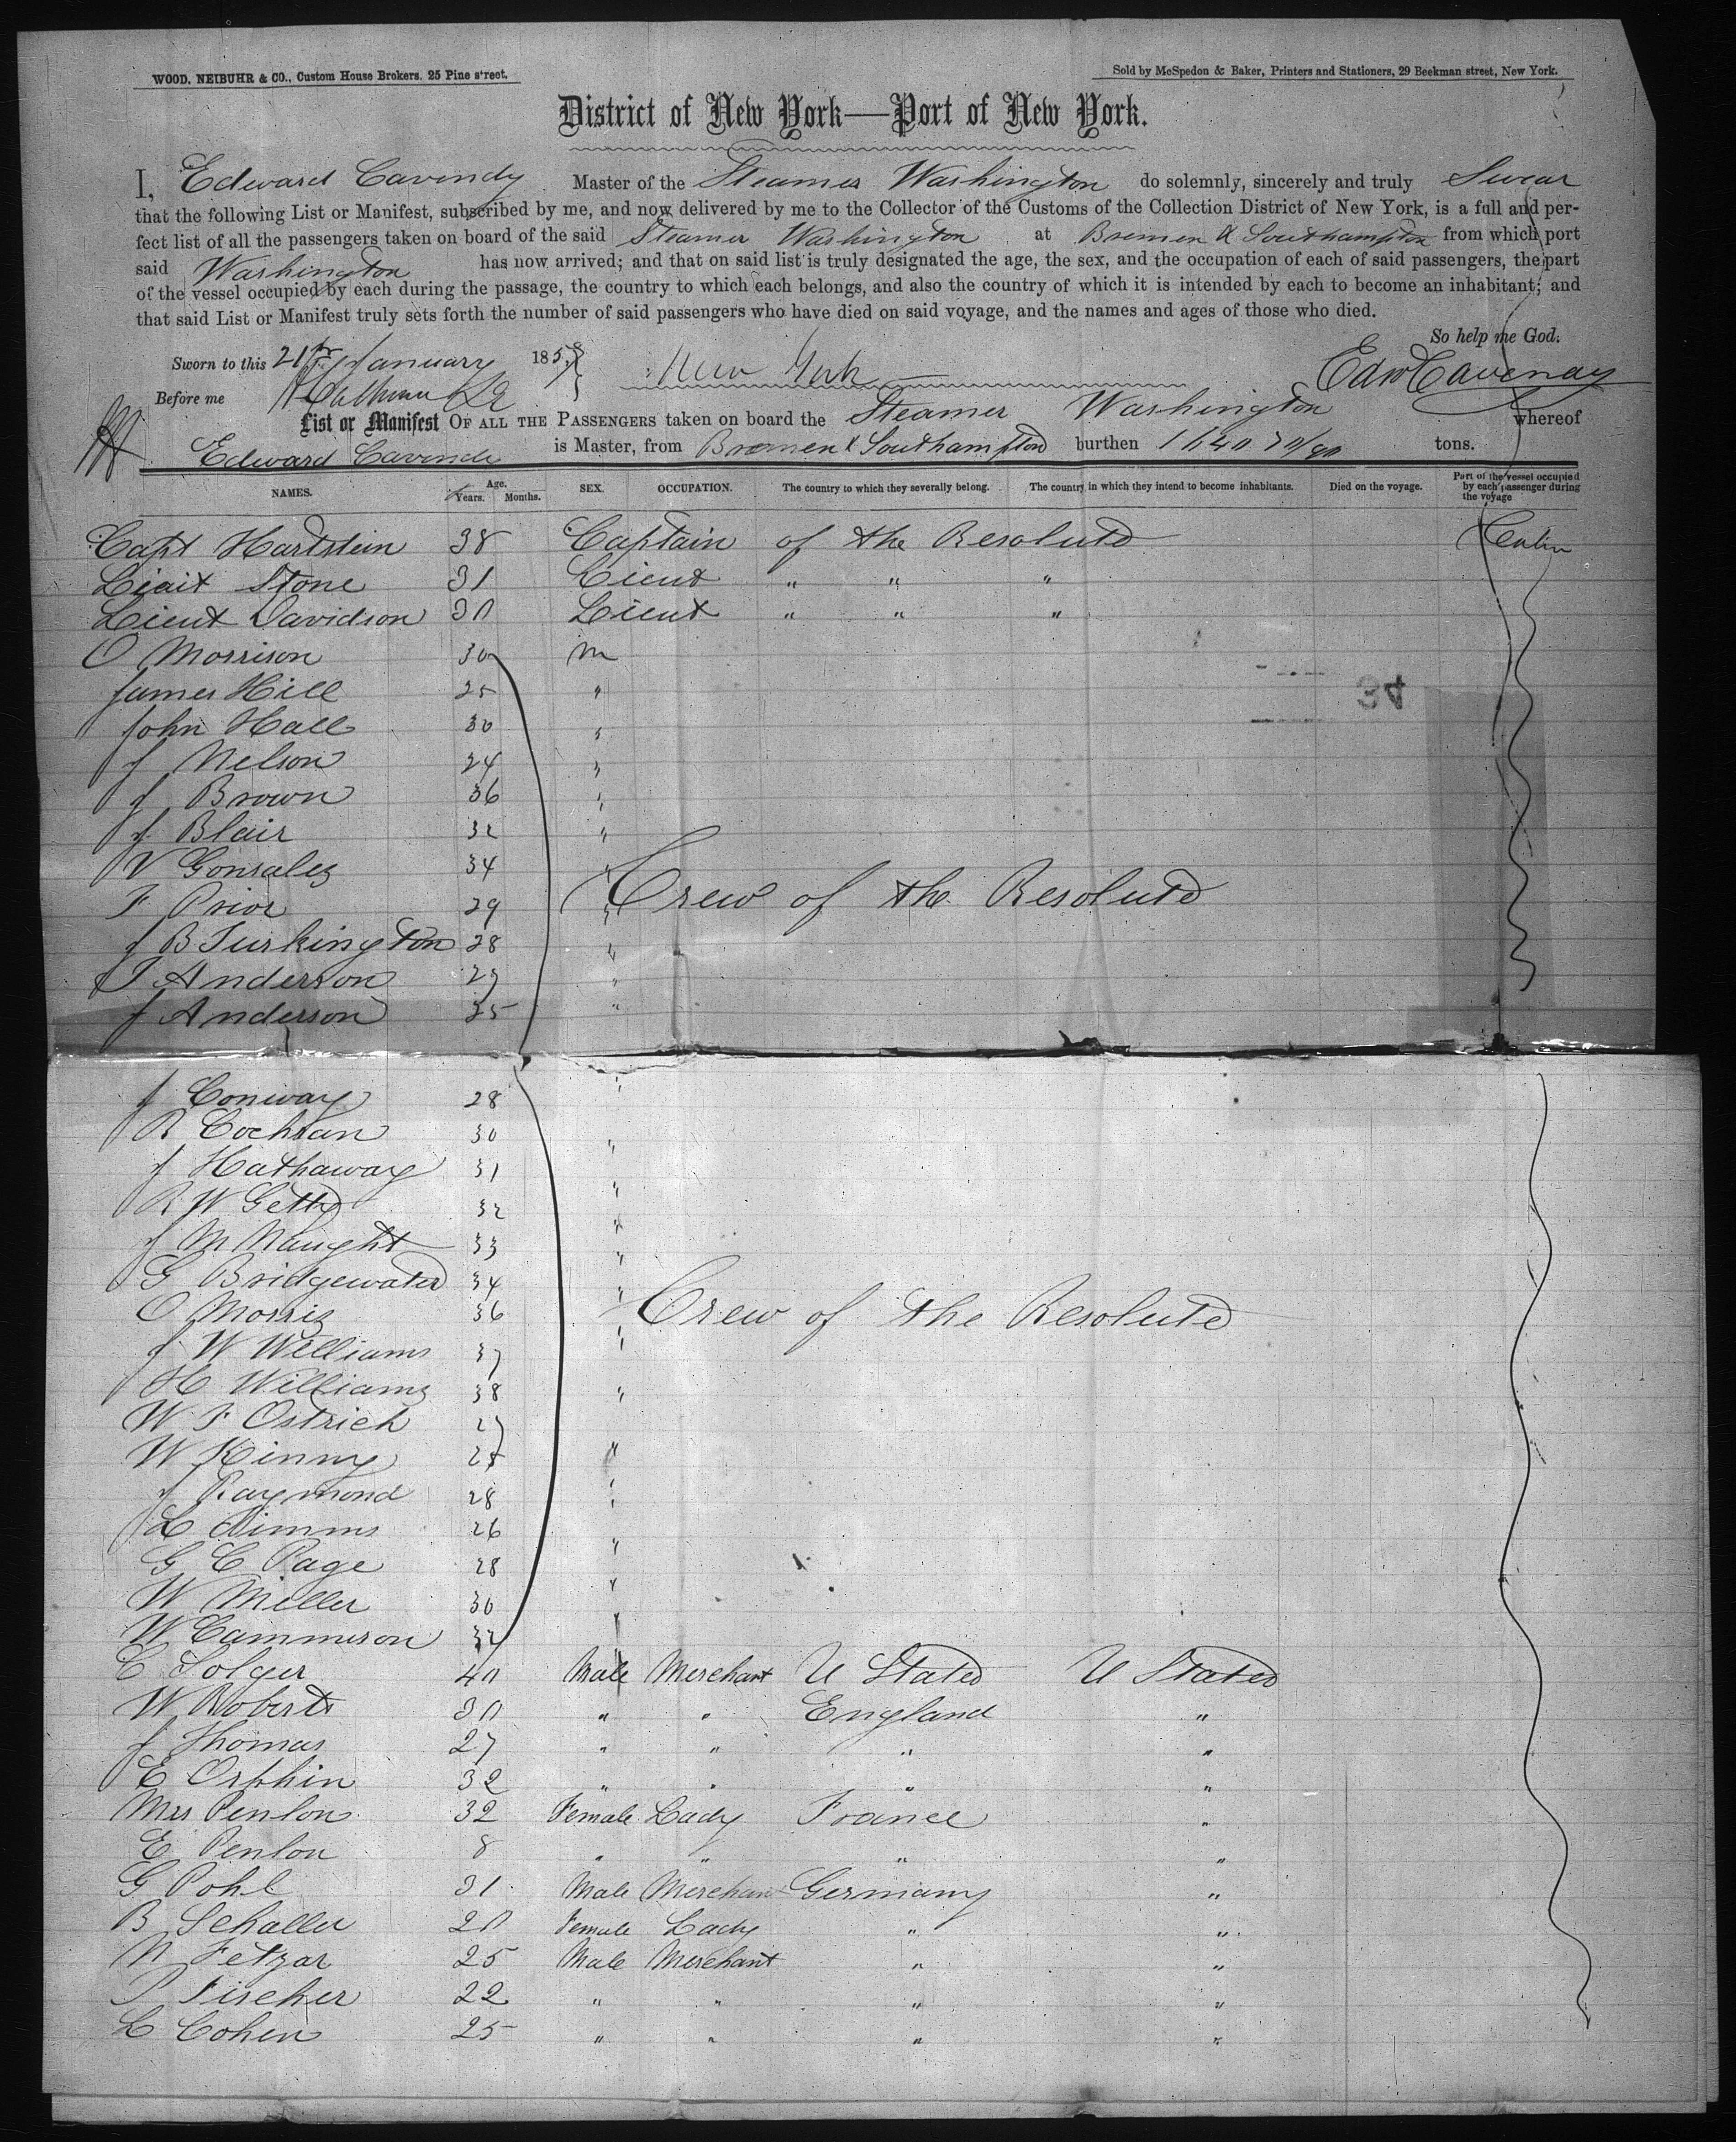 WOOD, NEIBUHR & CO., Custom House Brokers. 25 Pine street.
Sold by McSpedon & Baker, Printers and Stationers, 29 Beekman street, New York.
District of New York—Port of New York.
I, Edward Cavendy Master of the Steamer Washington do solemnly, sincerely and truly Swear
that the following List or Manifest, subscribed by me, and now delivered by me to the Collector of the Customs of the Collection District of New York, is a full and per-
fect list of all the passengers taken on board of the said Steamer Washington at Bremen & Southampton from which port
said Washington has now arrived; and that on said list is truly designated the age, the sex, and the occupation of each of said passengers, the part
of the vessel occupied by each during the passage, the country to which each belongs, and also the country of which it is intended by each to become an inhabitant; and
that said List or Manifest truly sets forth the number of said passengers who have died on said voyage, and the names and ages of those who died.
So help me God.
Sworn to this 21st January 185 New York Edw Cavendy
Before me
List or Manifest OF ALL THE PASSENGERS taken on board the Steamer Washington whereof
Edward Cavendy is Master, from Bremen & Southampton burthen tons.
NAMES. Age. Years. Months. SEX. OCCUPATION. The country to which they severally belong. The country in which they intend to become inhabitants. Died on the voyage. Part of the vessel occupied by each passenger during the voyage
Capt Hartstein 38 Captain of the Resolute Cabin
Lieut Stone 31 Lieut " " "
Lieut Davidson 30 Lieut " " "
O Morrison 30 m
James Hill 25 "
John Hall 30 "
J Nelson 24 "
J Brown 36 "
J Blair 32 "
V Gonsalez 34 "
Crew of the Resolute
F Prior 29 "
J B Turkington 28 "
T Anderson 27 "
J Anderson 35 "
J Conway 28 "
R Cochran 30 "
J Hathaway 31 "
R W Getty 32 "
J M Naught 33 "
G Bridgewater 34 "
Crew of the Resolute
O Morris 36 "
J W Williams 37 "
H Williams 38 "
W F Ostrich 27
W Kinny 25 "
J Raymond 28 "
L Simms 26 "
G C Page 28 "
W Miller 30 "
W Cammeron 32 "
C Folger 40 Male Merchant U States U States
W Roberts 30 " " England "
J Thomas 27 " " " "
E Orphin 32 " " " "
Mrs Penlon 32 Female Lady France "
E Penlon 8 " " " "
G Pohl 31 Male Merchant Germany "
B Schaller 20 Female Lady " "
N Fetzar 25 Male Merchant " "
P Fischer 22 " " " "
L Cohen 25 " " " "
34